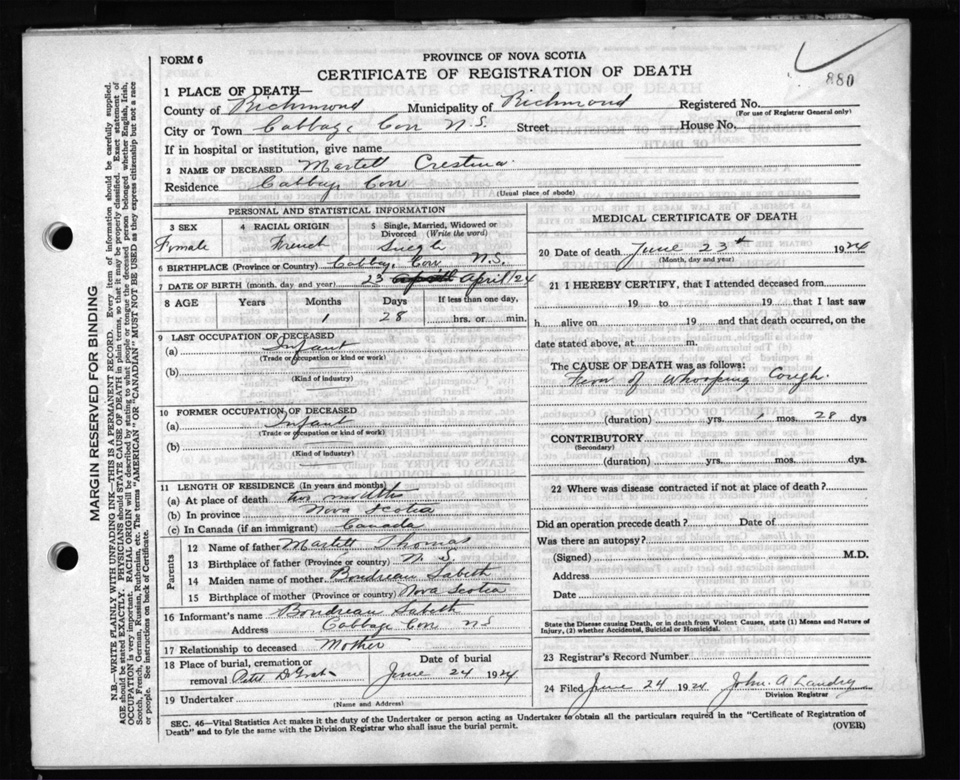 FORM 6
PROVINCE OF NOVA SCOTIA
CERTIFICATE OF REGISTRATION OF DEATH
880
1 PLACE OF DEATH—
County of Richmond Municipality of Richmond Registered No.
(For use of Registrar General only)
City or Town Cabbage Cov N.S. Street House No.
If in hospital or institution, give name
2 NAME OF DECEASED Martell Crestina
Residence Cabbag Cov
(Usual place of abode)
PERSONAL AND STATISTICAL INFORMATION
3 SEX 4 RACIAL ORIGIN 5 Single, Married, Widowed or Divorced (Write the word)
Female French
6 BIRTHPLACE (Province or Country) Cabbag Cov N.S.
7 DATE OF BIRTH (month, day and year) 25 April/24
8 AGE Years Months Days If less than one day,
1 28 hrs. or min.
9 LAST OCCUPATION OF DECEASED
(a) Infant
(Trade or occupation or kind of work)
(b)
(Kind of industry)
10 FORMER OCCUPATION OF DECEASED
(a) Infant
(Trade or occupation or kind of work)
(b)
(Kind of industry)
11 LENGTH OF RESIDENCE (In years and months)
(a) At place of death two months
(b) In province Nova Scotia
(c) In Canada (if an immigrant) Canada
Parents
12 Name of father Martell Thomas
13 Birthplace of father (Province or country) N S.
14 Maiden name of mother Boudreau Sabeth
15 Birthplace of mother (Province or country) Nova Scotia
16 Informant's name Boudreau Sabeth
Address Cabbage Cov N S
17 Relationship to deceased Mother
18 Place of burial, cremation or removal Petit D Grat Date of burial June 24 1924
19 Undertaker
(Name and Address)
MEDICAL CERTIFICATE OF DEATH
20 Date of death June 23th 1924
(Month, day and year)
21 I HEREBY CERTIFY, that I attended deceased from
19 to 19 that I last saw
h alive on 19 and that death occurred, on
date stated above, at m.
The CAUSE OF DEATH was as follows:
of Whooping Cough.
(duration) yrs. 1 mos. 28 dys
CONTRIBUTORY
(Secondary)
(duration) yrs. mos. dys.
22 Where was disease contracted if not at place of death?
Did an operation precede death? Date of
Was there an autopsy?
(Signed) M.D.
Address
Date
State the Disease causing Death, or in death from Violent Causes, state (1) Means and Nature of
Injury, (2) whether Accidental, Suicidal or Homicidal.
23 Registrar's Record Number
24 Filed June 24 1924 John. A Landry
Division Registrar
SEC. 46—Vital Statistics Act makes it the duty of the Undertaker or person acting as Undertaker to obtain all the particulars required in the "Certificate of Registration of
Death" and to fyle the same with the Division Registrar who shall issue the burial permit.
(OVER)
MARGIN RESERVED FOR BINDING
N.B.—WRITE PLAINLY WITH UNFADING INK—THIS IS A PERMANENT RECORD. Every item of information should be carefully supplied.
AGE should be stated EXACTLY. PHYSICIANS should STATE CAUSE OF DEATH in plain terms, so that it may be properly classified. Exact statement of
OCCUPATION is very important. RACIAL ORIGIN will be described by stating to what people or tongue the deceased person belonged whether English, Irish,
Scotch, French, German, Russian, Ruthenian, etc. The terms "AMERICAN" OR "CANADIAN" MUST NOT BE USED as they express citizenship but not a race
or people. See instructions on back of Certificate.